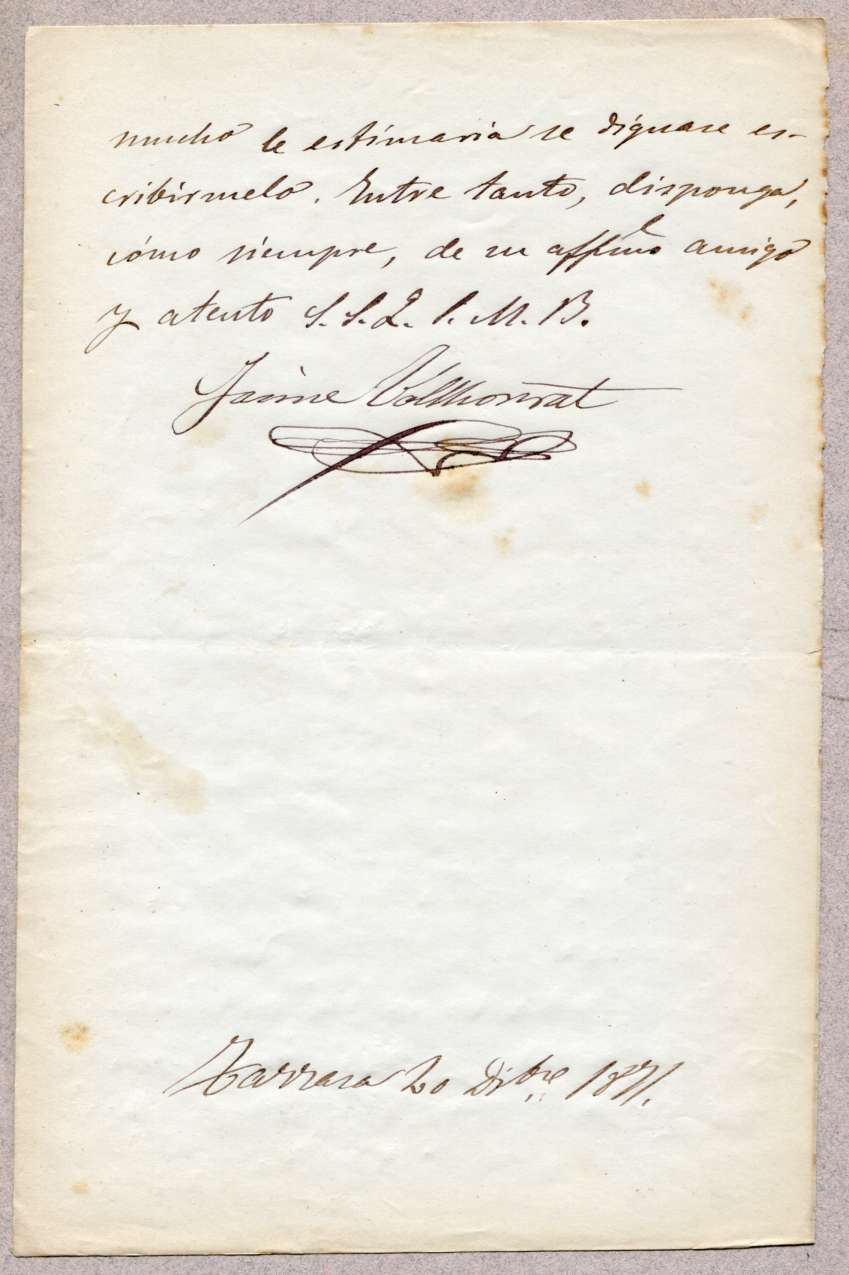 mucho le estimaria se dignase es-
cribirmelo. Entre tanto, disponga,
cómo siempre, de su affmo amigo
y atento S. S. Q. S. M. B.
Jaime Vallhonrat
Tarrasa 20 Dibre 1871.